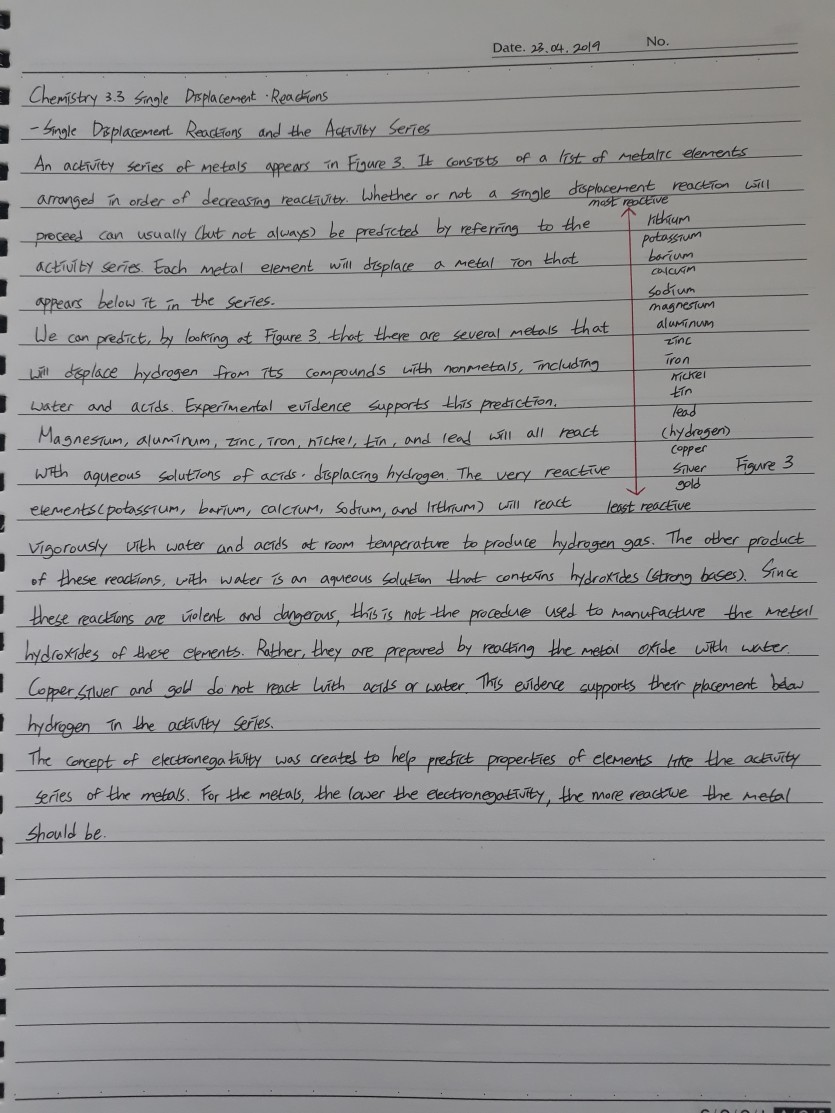 Date. 23.04.2019 No.
Chemistry 3.3 Single Displacement Reactions
- Single Displacement Reactions and the Activity Series
An activity series of metals appears in Figure 3. It consists of a list of metalic elements
arranged in order of decreasing reactivity. Whether or not a single displacement reaction will
most reactive
proceed can usually (but not always) be predicted by referring to the
lithium
potassium
activity series. Each metal element will displace a metal ion that
barium
calcuim
appears below it in the series.
sodium
magnesium
We can predict, by looking at Figure 3, that there are several metals that
aluminum
zinc
will displace hydrogen from its compounds with nonmetals, including
iron
nickel
water and acids. Experimental evidence supports this prediction.
tin
lead
Magnesium, aluminum, zinc, iron, nickel, tin, and lead will all react
(hydrogen)
copper
with aqueous solutions of acids. displacing hydrogen. The very reactive
silver Figure 3
gold
elements (potassium, barium, calcium, sodium, and lithium) will react
least reactive
vigorously with water and acids at room temperature to produce hydrogen gas. The other product
of these reactions, with water is an aqueous solution that contains hydroxides (strong bases). Since
these reactions are violent and dangerous, this is not the procedure used to manufacture the metal
hydroxides of these elements. Rather, they are prepared by reacting the metal oxide with water.
Copper, silver and gold do not react with acids or water. This evidence supports their placement below
hydrogen in the activity series.
The concept of electronegativity was created to help predict properties of elements like the activity
series of the metals. For the metals, the lower the electronegativity, the more reactive the metal
should be.